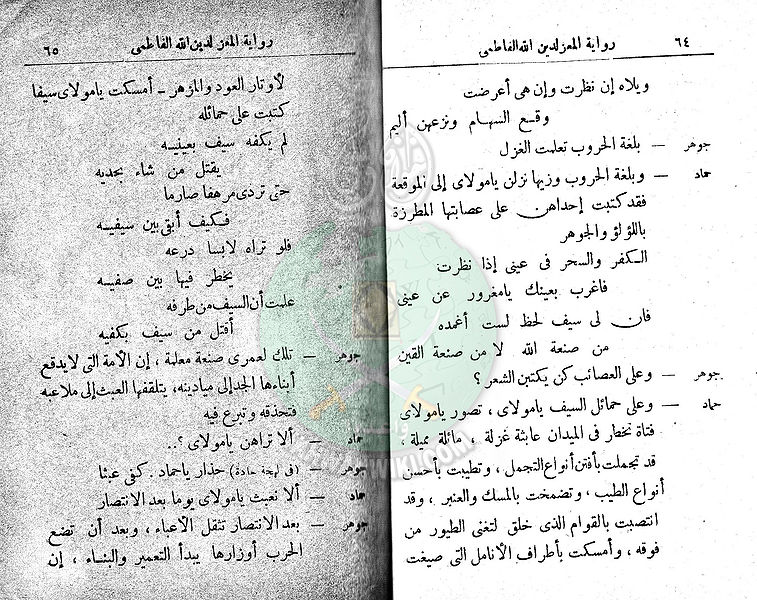 ٦٤ رواية المعز لدين الله الفاطمى
ويلاه إن نظرت وإن هى أعرضت
وقع السهام ونزعهن أليم
جوهر — بلغة الحروب تعلمت الغزل
حماد — وبلغة الحروب وزيها نزلن يامولاى إلى الموقعة
فقد كتبت إحداهن على عصابتها المطرزة
باللؤلؤ والجوهر
الكفر والسحر فى عينى إذا نظرت
فاغرب بعينك يامغرور عن عينى
فان لى سيف لحظ لست أغمده
من صنعة الله لا من صنعة القين
جوهر — وعلى العصائب كن يكتبن الشعر ؟
حماد — وعلى حمائل السيف يامولاى ، تصور يامولاى
فتاة تخطار فى الميدان عابثة غزلة ، مائلة مميلة ،
قد تجملت بأفتن أنواع التجمل ، وتطيبت بأحسن
أنواع الطيب ، وتضمخت بالمسك والعنبر ، وقد
انتصبت بالقوام الذى خلق لتغنى الطيور من
فوقه ، وأمسكت بأطراف الأنامل التى صيغت
رواية المعز لدين الله الفاطمى ٦٥
لأوتار العود والمزهر — أمسكت يامولاى سيفا
كتبت على حمائله
لم يكفه سيف بعينيه
يقتل من شاء بحديه
حتى تردى مرهفا صارما
فكيف أبقى بين سيفيه
فلو تراه لابسا درعه
يخطر فيها بين صفيه
علمت أن السيف من طرفه
أقتل من سيف بكفيه
جوهر — تلك لعمرى صنعة معلمة ، إن الأمة التى لا يدفع
أبناءها الجد إلى ميادينه، يتلقفها العبث إلى ملاعبه
فتحذقه وتبرع فيه
حماد — ألا تراهن يامولاى ؟..
جوهر — (فى لهجة حادة) حذار ياحماد . كفى عبثا
حماد — ألا نعبث يامولاى يوما بعد الانتصار
جوهر — بعد الانتصار تثقل الأعباء ، وبعد أن تضع
الحرب أوزارها يبدأ التعمير والبناء ، إن